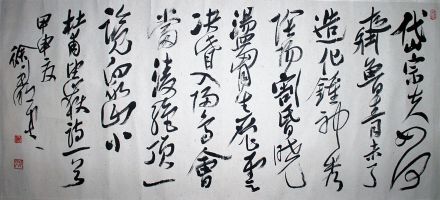 岱宗夫如何
齊魯青未了
造化鍾神秀
陰陽割昏曉
盪胸生層雲
決眥入歸鳥會
當凌絕頂一
覽眾山小
杜甫望嶽詩一首
甲申夏
徐